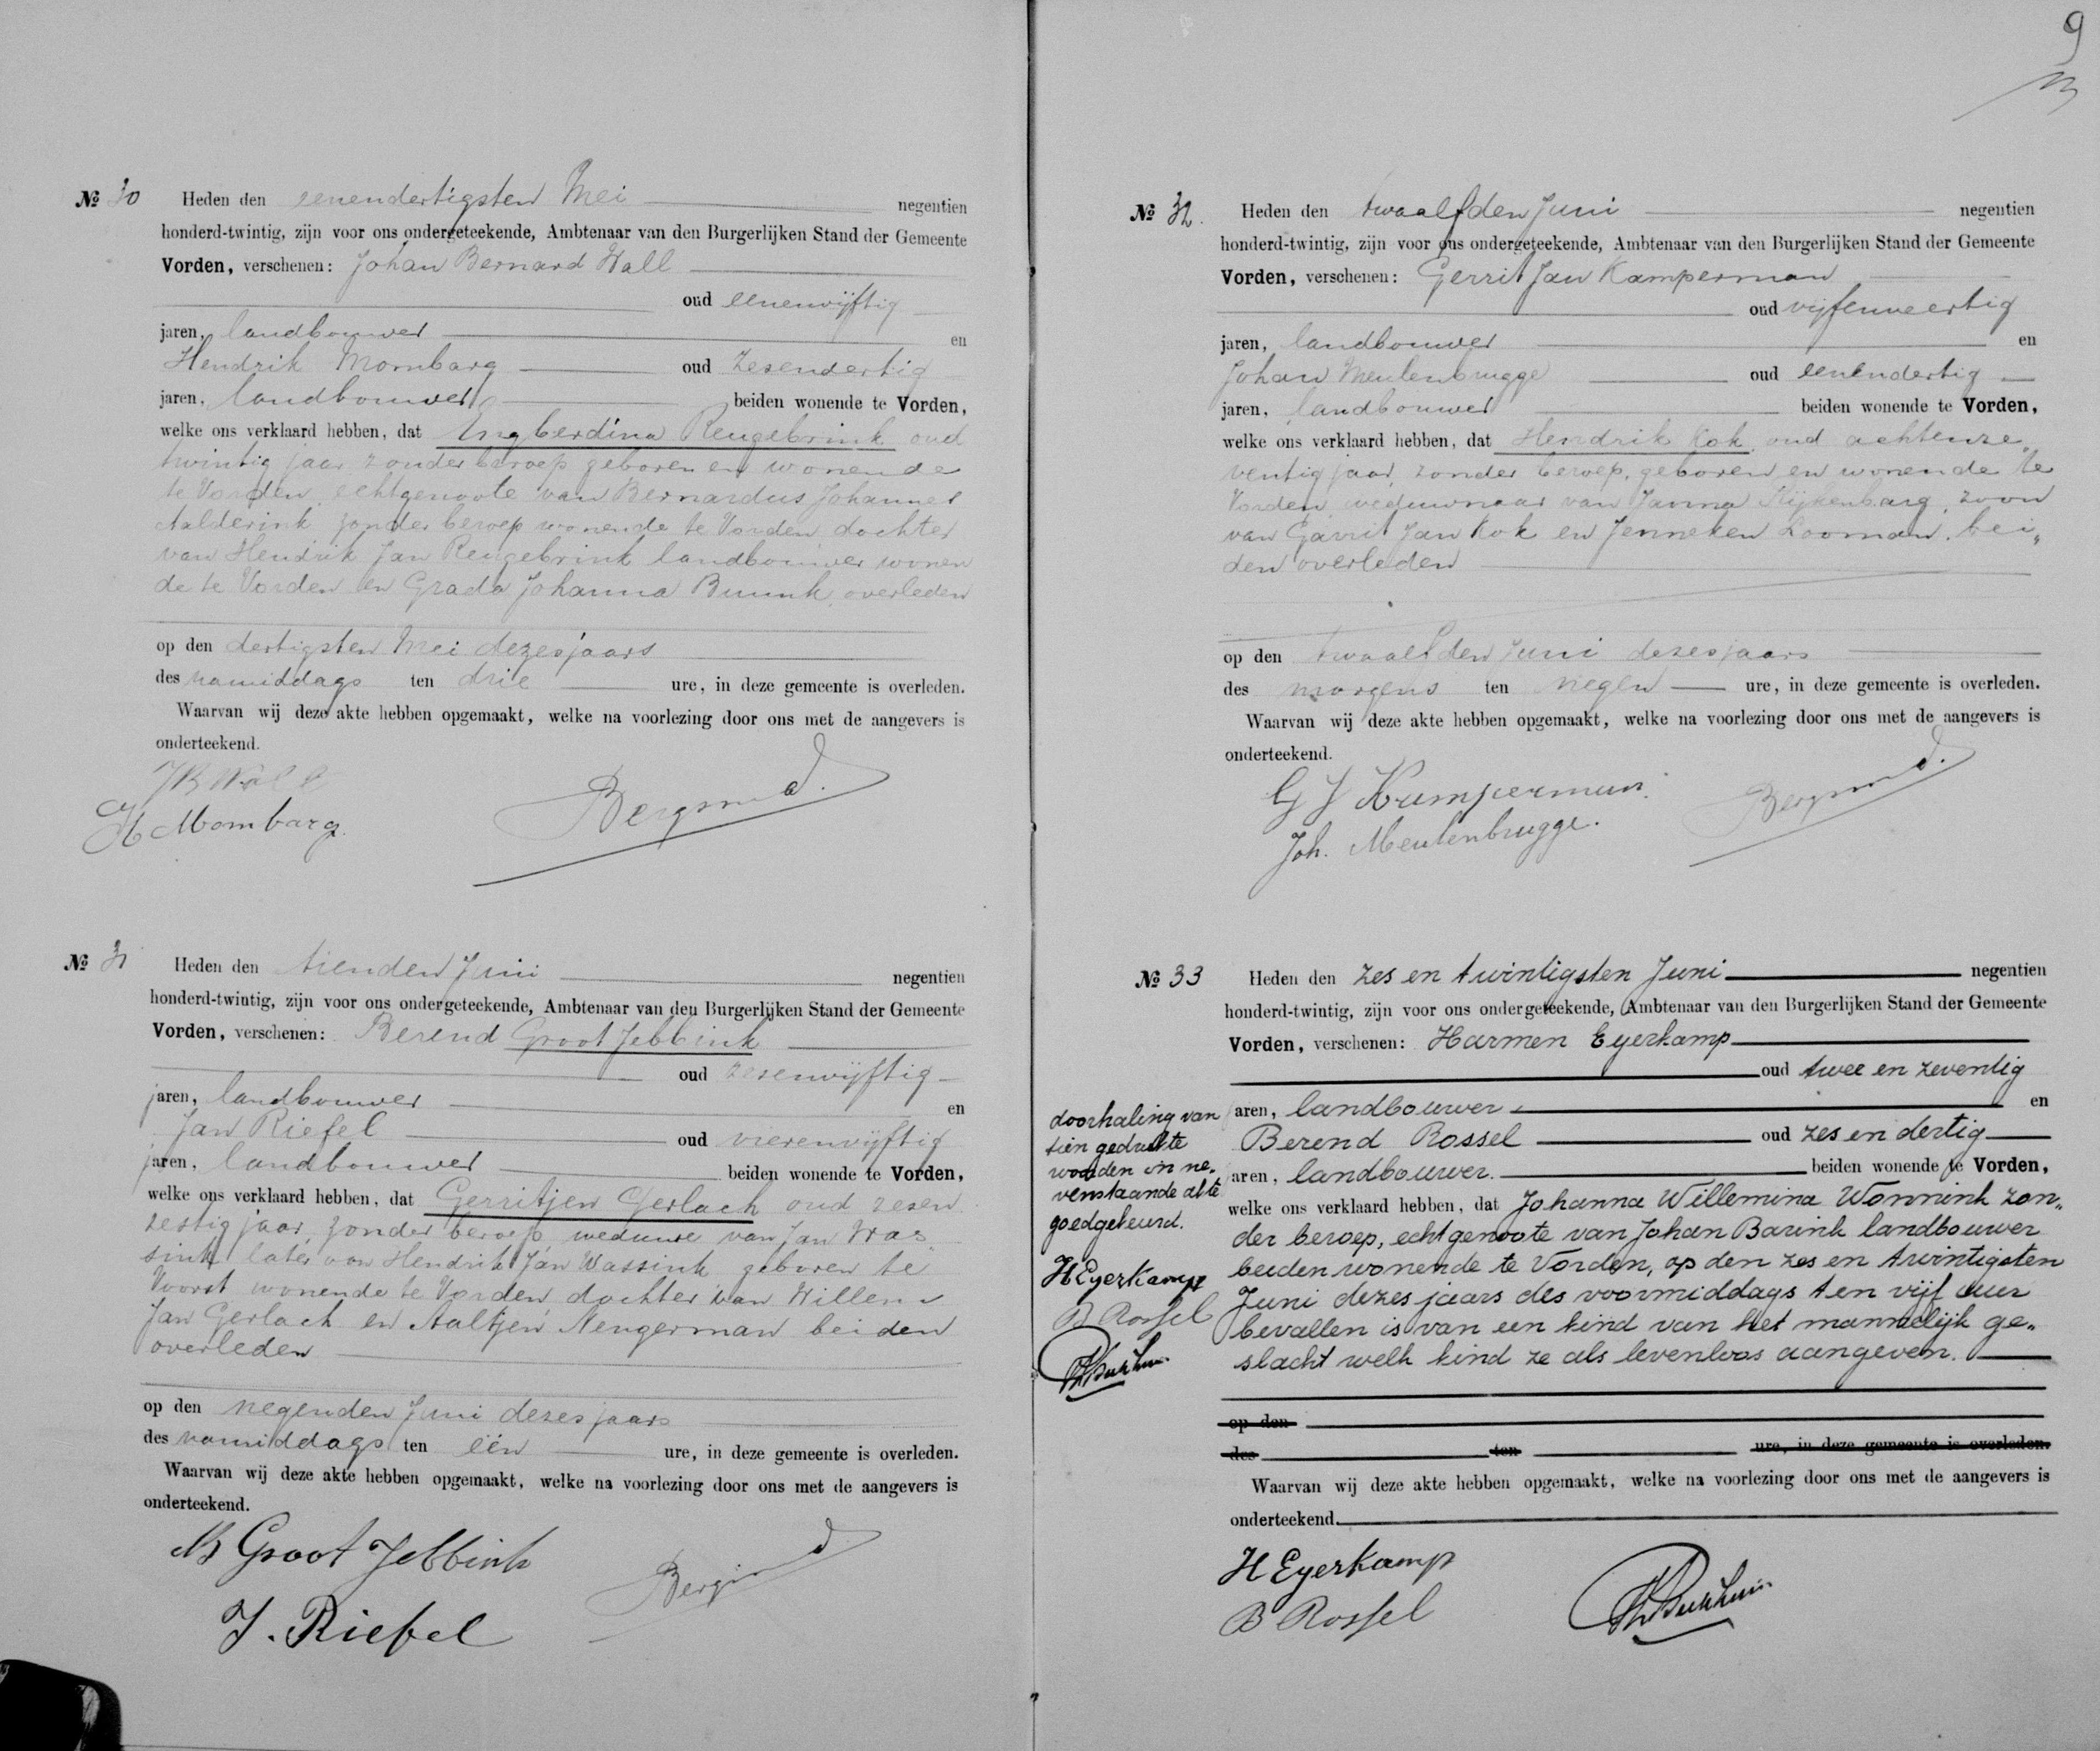 № 30 Heden den eenendertigsten Mei negentien
honderd-twintig, zijn voor ons ondergeteekende, Ambtenaar van den Burgerlijken Stand der Gemeente
Vorden, verschenen: Johan Bernard Wall
oud eenenvijftig
jaren, landbouwer en
Hendrik Mombarg oud zesendertig
jaren, landbouwer beiden wonende te Vorden,
welke ons verklaard hebben, dat Engberdina Reugebrink oud
twintig jaar zonder beroep geboren en wonende
te Vorden, echtgenoote van Bernardus Johannes
Aalderink, zonder beroep wonende te Vorden dochter
van Hendrik Jan Reugebrink landbouwer wonen
de te Vorden en Grada Johanna Buunk, overleden
op den dertigsten Mei dezes jaars
des namiddags ten drie ure, in deze gemeente is overleden.
Waarvan wij deze akte hebben opgemaakt, welke na voorlezing door ons met de aangevers is
onderteekend.
JB Wall
H Mombarg.
Bergsma
№ 31 Heden den tienden Juni negentien
honderd-twintig, zijn voor ons ondergeteekende, Ambtenaar van den Burgerlijken Stand der Gemeente
Vorden, verschenen: Berend Groot Jebbink
oud zesenvijftig
jaren, landbouwer en
Jan Riefel oud vierenvijftig
jaren, landbouwer beiden wonende te Vorden,
welke ons verklaard hebben, dat Gerritjen Gerlach oud zesen
zestig jaar, zonder beroep weduwe van Jan Was
sink later van Hendrik Jan Wassink geboren te
Voorst wonende te Vorden, dochter van Willem
Jan Gerlach en Aaltjen Nengerman beiden
overleden
op den negenden Juni dezes jaars
des namiddags ten één ure, in deze gemeente is overleden.
Waarvan wij deze akte hebben opgemaakt, welke na voorlezing door ons met de aangevers is
onderteekend.
B Groot Jebbink
J. Riefel
9
№ 32. Heden den twaalfden Juni negentien
honderd-twintig, zijn voor ons ondergeteekende, Ambtenaar van den Burgerlijken Stand der Gemeente
Vorden, verschenen: Gerrit Jan Kamperman
oud vijfenveertig
jaren, landbouwer en
Johan Meulenbrugge oud eenendertig
jaren, landbouwer beiden wonende te Vorden,
welke ons verklaard hebben, dat Hendrik Kok, oud achtenze„
ventig jaar, zonder beroep, geboren en wonende te
Vorden weduwnaar van Janna Nijkenbarg, zoon
van Garrit Jan Kok en Jenneken Looman, bei„
den overleden
op den twaalfden Juni dezes jaars
des morgens ten negen ure, in deze gemeente is overleden.
Waarvan wij deze akte hebben opgemaakt, welke na voorlezing door ons met de aangevers is
onderteekend.
G J Kamperman.
Joh. Meulenbrugge.
№ 33 Heden den zes en twintigsten Juni negentien
honderd-twintig, zijn voor ons ondergeteekende, Ambtenaar van den Burgerlijken Stand der Gemeente
Vorden, verschenen: Harmen Eyerkamp
oud twee en zeventig
jaren, landbouwer en
Berend Rossel oud zes en dertig
jaren, landbouwer. beiden wonende te Vorden,
welke ons verklaard hebben, dat Johanna Willemina Wonnink zon„
der beroep, echtgenoote van Johan Barink landbouwer
beiden wonende te Vorden, op den zes en twintigsten
Juni dezes jaars des voormiddags ten vijf uur
bevallen is van een kind van het mannelijk ge„
slacht welk kind ze als levenloos aangeven.
op den
des ten ure, in deze gemeente is overleden.
Waarvan wij deze akte hebben opgemaakt, welke na voorlezing door ons met de aangevers is
onderteekend.
H Eyerkamp
B Rossel
doorhaling van
tien gedrukte
woorden in ne„
venstaande akte
goedgekeurd.
H Eyerkamp
B Rossel